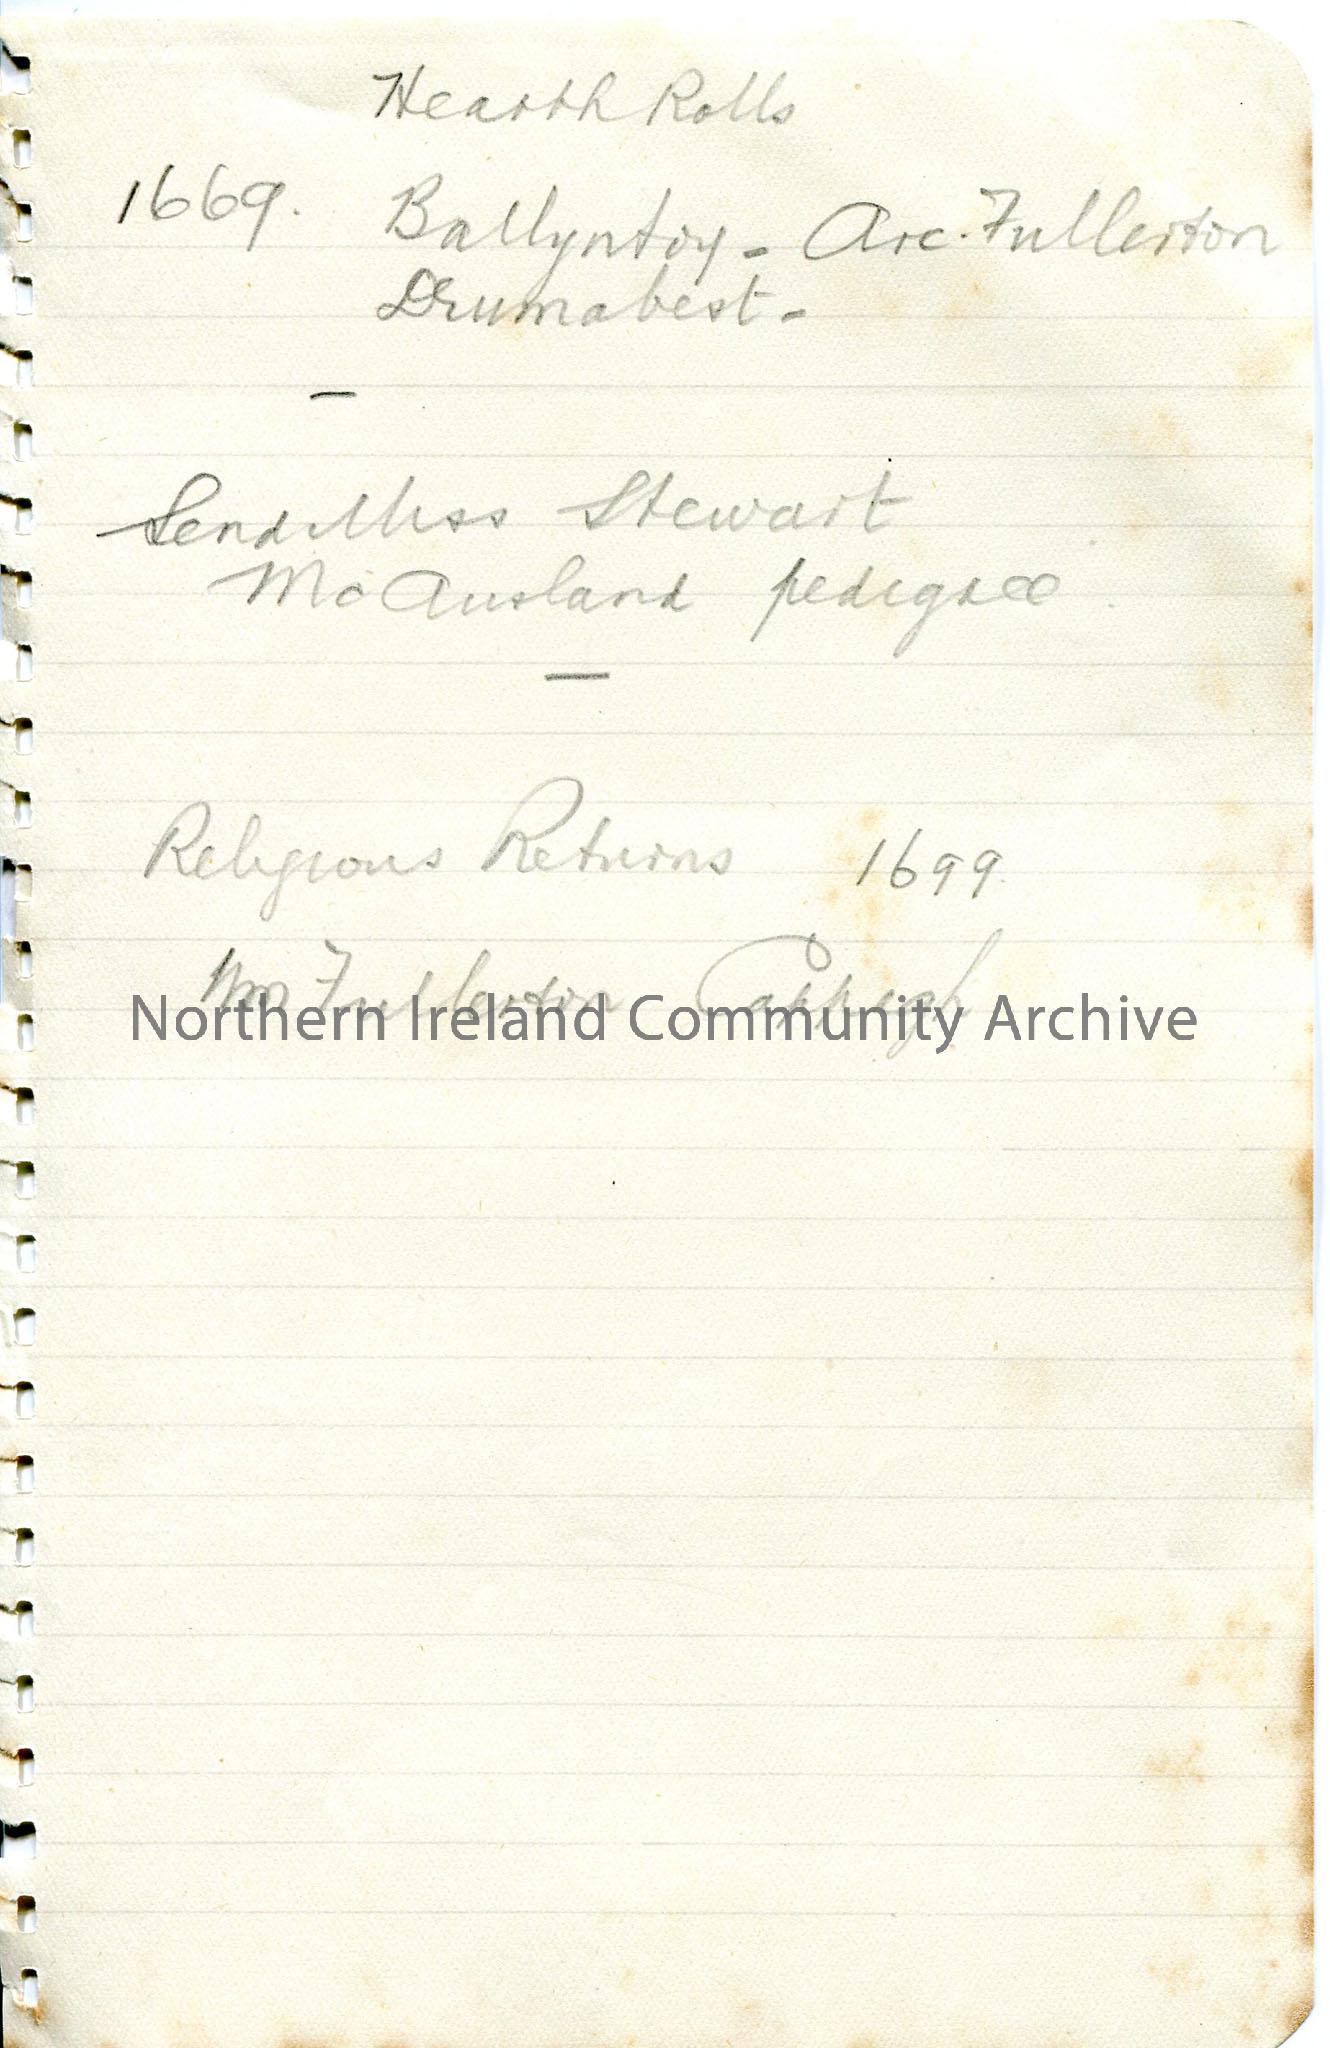 Hearth Rolls
1669. Ballyntoy - Arc. Fullerton
Drumabest -
—
Send Miss Stewart
McAusland pedigree
—
Religious Returns 1699
Wm Fullerton
Northern Ireland Community Archive